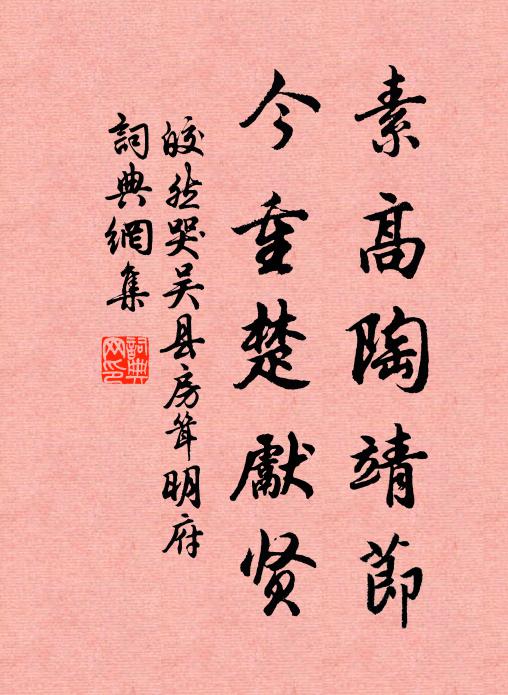 素高陶靖節
今重楚獻贤
皎然哭吴县房耸明府
詞典網集
詞典網印